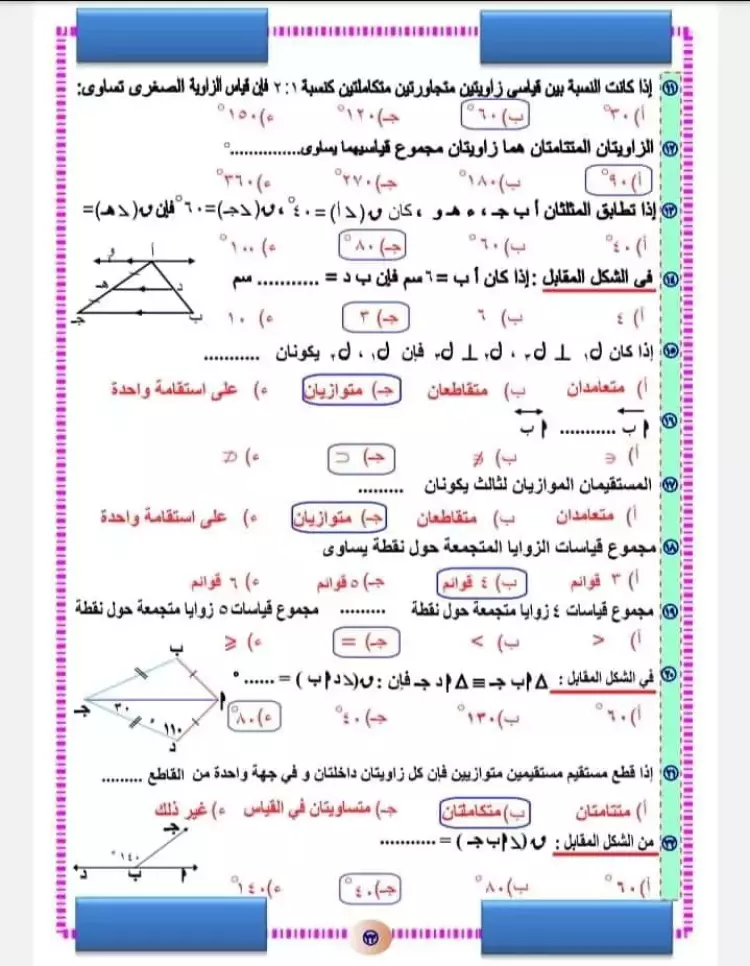 ١١ إذا كانت النسبة بين قياسي زاويتين متجاورتين متكاملتين كنسبة ١ : ٢ فإن قياس الزاوية الصغرى تساوى:
أ) ٣٠° ب) ٦٠° جـ) ١٢٠° ء) ١٥٠°
١٢ الزاويتان المتتامتان هما زاويتان مجموع قياسيهما يساوى..............°
أ) ٩٠° ب) ١٨٠° جـ) ٢٧٠° ء) ٣٦٠°
١٣ إذا تطابق المثلثان أ ب جـ ، ء هـ و ، كان ن(∠أ) = ٤٠° ، ن(∠جـ) = ٦٠° فإن ن(∠هـ)=
أ) ٤٠° ب) ٦٠° جـ) ٨٠° ء) ١٠٠°
١٤ فى الشكل المقابل : إذا كان أ ب = ٦ سم فإن ب د = ........... سم
أ و
هـ د
جـ ب
أ) ٤ ب) ٦ جـ) ٣ ء) ١٠
١٥ إذا كان ل١ ⊥ ل٣ ، ل٢ ⊥ ل٣ فإن ل١ ، ل٢ يكونان ...........
أ) متعامدان ب) متقاطعان جـ) متوازيان ء) على استقامة واحدة
١٦ أ ب ........... أ ب
أ) ∈ ب) ∉ جـ) ⊂ ء) ⊄
المستقيمان الموازيان لثالث يكونان .........
أ) متعامدان ب) متقاطعان جـ) متوازيان ء) على استقامة واحدة
١٨ مجموع قياسات الزوايا المتجمعة حول نقطة يساوى
أ) ٣ قوائم ب) ٤ قوائم جـ) ٥ قوائم ء) ٦ قوائم
١٩ مجموع قياسات ٤ زوايا متجمعة حول نقطة ......... مجموع قياسات ٥ زوايا متجمعة حول نقطة
أ) < ب) > جـ) = ء) ⩽
٢٠ في الشكل المقابل : △ أ ب جـ ≡ △ أ د جـ فإن : ن(∠ د أ ب ) = ...... °
ب
أ جـ
٣٠ ١١٠°
د
أ) ٦٠° ب) ١٣٠° جـ) ٤٠° ء) ٨٠°
٢١ إذا قطع مستقيم مستقيمين متوازيين فإن كل زاويتان داخلتان و في جهة واحدة من القاطع .........
أ) متتامتان ب) متكاملتان جـ) متساويتان في القياس ء) غير ذلك
٢٢ من الشكل المقابل : ن(∠ أ ب جـ ) = ...........
جـ
١٤٠°
أ ب د
أ) ٦٠° ب) ٨٠° جـ) ٤٠° ء) ١٤٠°